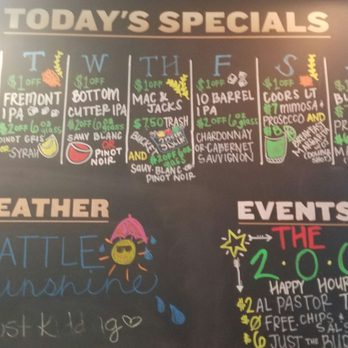 TODAY'S SPECIALS
T
$1 OFF
FREMONT
IPA
$2 OFF 6 OZ
glass
PINOT GRIS
OR
SYRAH
W
$1 OFF
BOTTOM
CUTTER IPA
$2 OFF 6 OZ
glass
SAUV BLANC
OR
PINOT
NOIR
TH
$1 OFF
MAC &
JACKS
$7.50 TRASH
BUCKET
AND
$2 OFF 6 OZ
glass
SAUV BLANC OR
PINOT NOIR
F
$1 OFF
10 BARREL
IPA
$2 OFF 6 OZ
glass
CHARDONNAY
OR CABERNET
SAUVIGNON
S
$1 OFF
COORS LT
$7 MIMOSA
PROSECCO AND
BREAKFAST
EATHER
ATTLE
unshine
ust Kidding
EVENTS
THE
2.0.
HAPPY HOUR
$2 AL PASTOR T
$0 FREE CHIPS &
SALS
$6 JUST THE BU